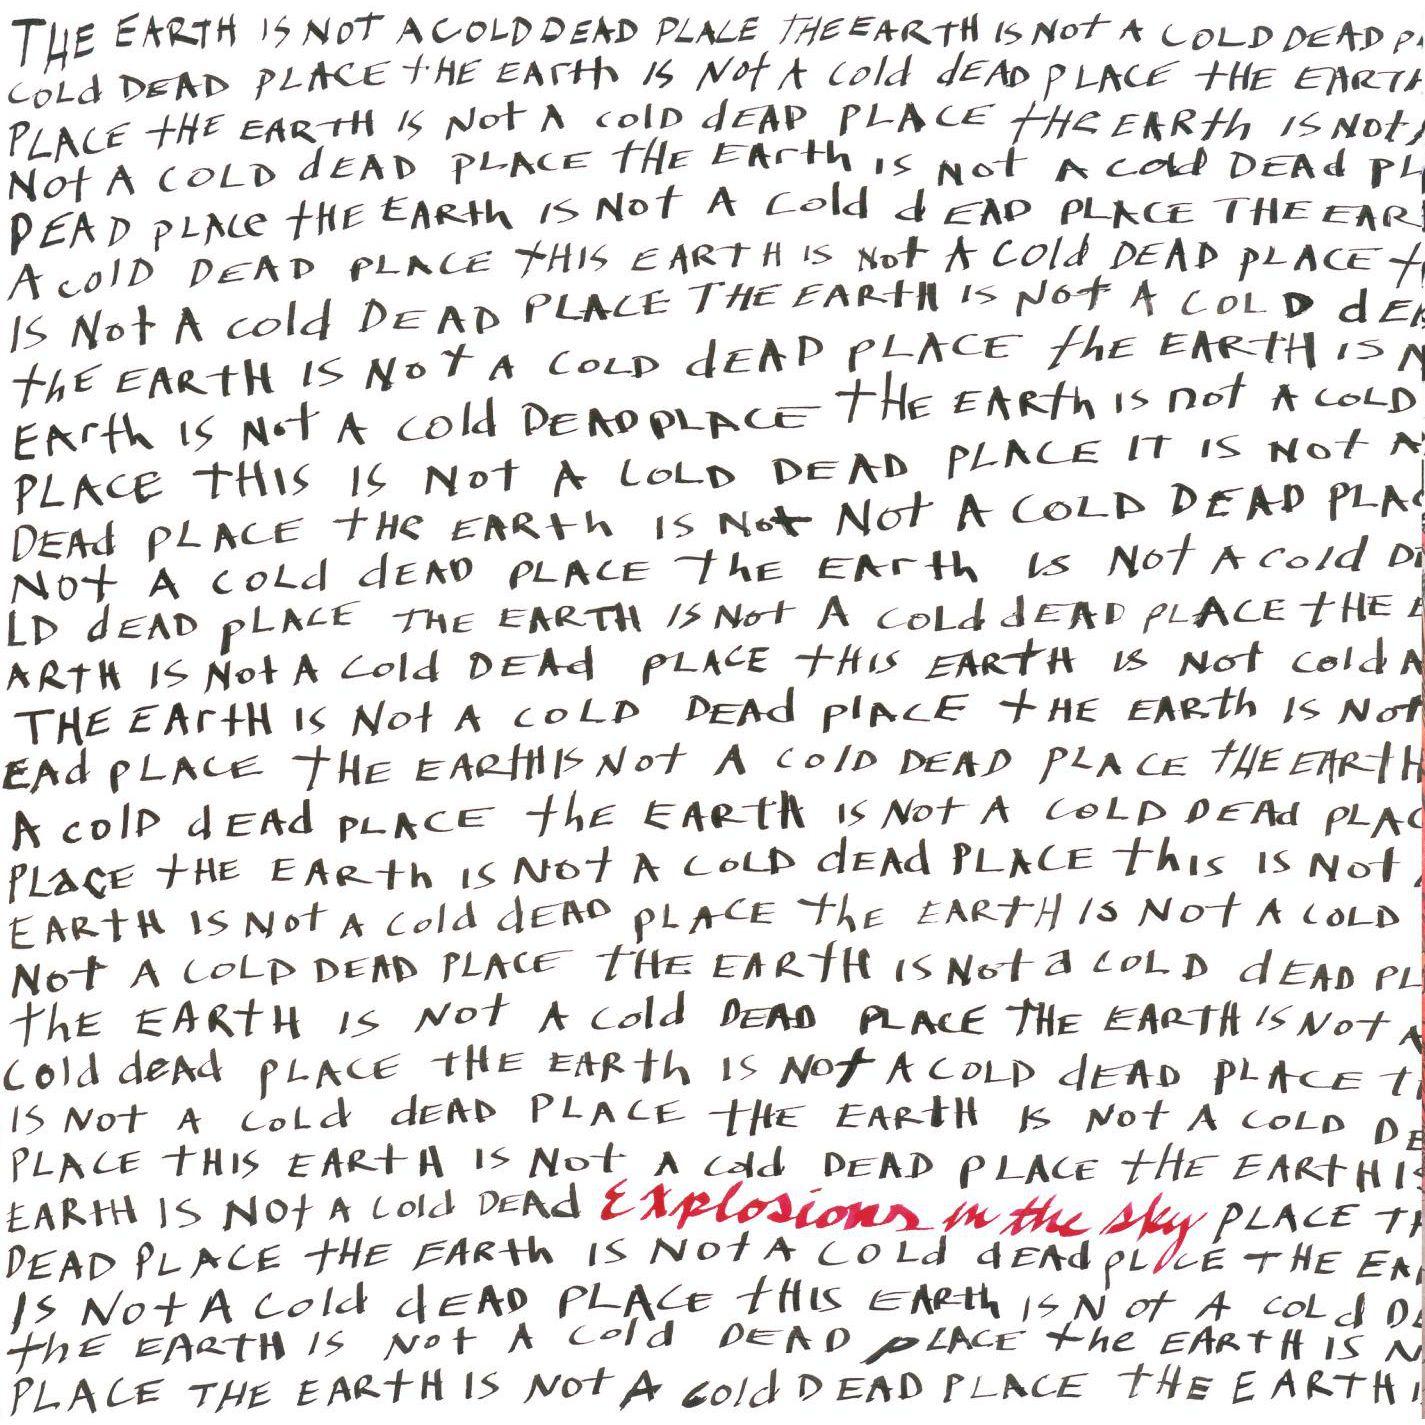 THE EARTH IS NOT A COLD DEAD PLACE THE EARTH IS NOT A COLD DEAD
COLd DEAD PLACE tHE EArth IS Not A Cold dEAD PLACE tHE EARTH
PLACE tHE EARtH IS Not A cold dEAD PLACE tHe EARth IS Not
Not A COLD dEAD PLACE tHE EArth IS Not A Cold DEAd PL
DEAD PLAce tHE EARth IS Not A Cold dEAD PLACE THE EAR
A colD DEAD PLACE tHIS EARTH IS Not A Cold DEAD pLACE t
IS Not A cold DEAD PLACE THE EARtH IS Not A COLD dEA
thE EARtH IS NoT A COLD dEAD PLACE the EARtH IS N
EArth IS Not A cold DEAD PLACE tHE EARth IS not A COLD
PLACE tHIS IS Not A COLD DEAD PLACE IT IS Not A
DEAd PLACE tHe EARth IS Not Not A COLD DEAD PLAC
Not A COLd dEAD PLACE The EArth IS Not A cold D
LD dEAD pLACE THE EARTH IS Not A COLd dEAD pLACE tHE E
ARTH IS Not A Cold DEAd PLACE tHIS EARtH IS Not Cold A
THE EArtH IS Not A COLD DEAd plACE tHE EARth IS Not
EAd pLACE tHE EARtH IS Not A ColD DEAD PLACE tHE EARtH
A colD dEAd pLACE thE EARTH IS Not A COLD DEAd PLAC
PLaCE tHE EARth IS Not A COLD dEAd PLACE this IS Not
EARTH IS Not A Cold dEAD pLACE the EARTH IS Not A COLD
Not A COLD DEAD PLACE tHE EARtH IS Not a COLD dEAD PL
thE EARtH IS Not A Cold DEAD PLACE THE EARTH IS Not A
Cold dead pLACE tHE EARth IS Not A COLD dEAD PLACE t
IS Not A COLd dEAD PLACE tHE EARtH IS Not A COLD DE
PLACE tHIS EARtH IS Not A Cold DEAD PLACE tHE EARtH IS
EARtH IS Not A Cold DEAd Explosions in the sky PLACE
DEAD PLACE tHE EARth IS Not A COLd dEAd pLACE tHE EA
IS Not A Cold dEAD PLACE tHIS EARth IS Not A COLd D
thE EARTH IS Not A Cold DEAD pLACE the EARtH IS N
PLACE tHE EARtH IS Not A Cold DEAD PLACE tHE EARTH